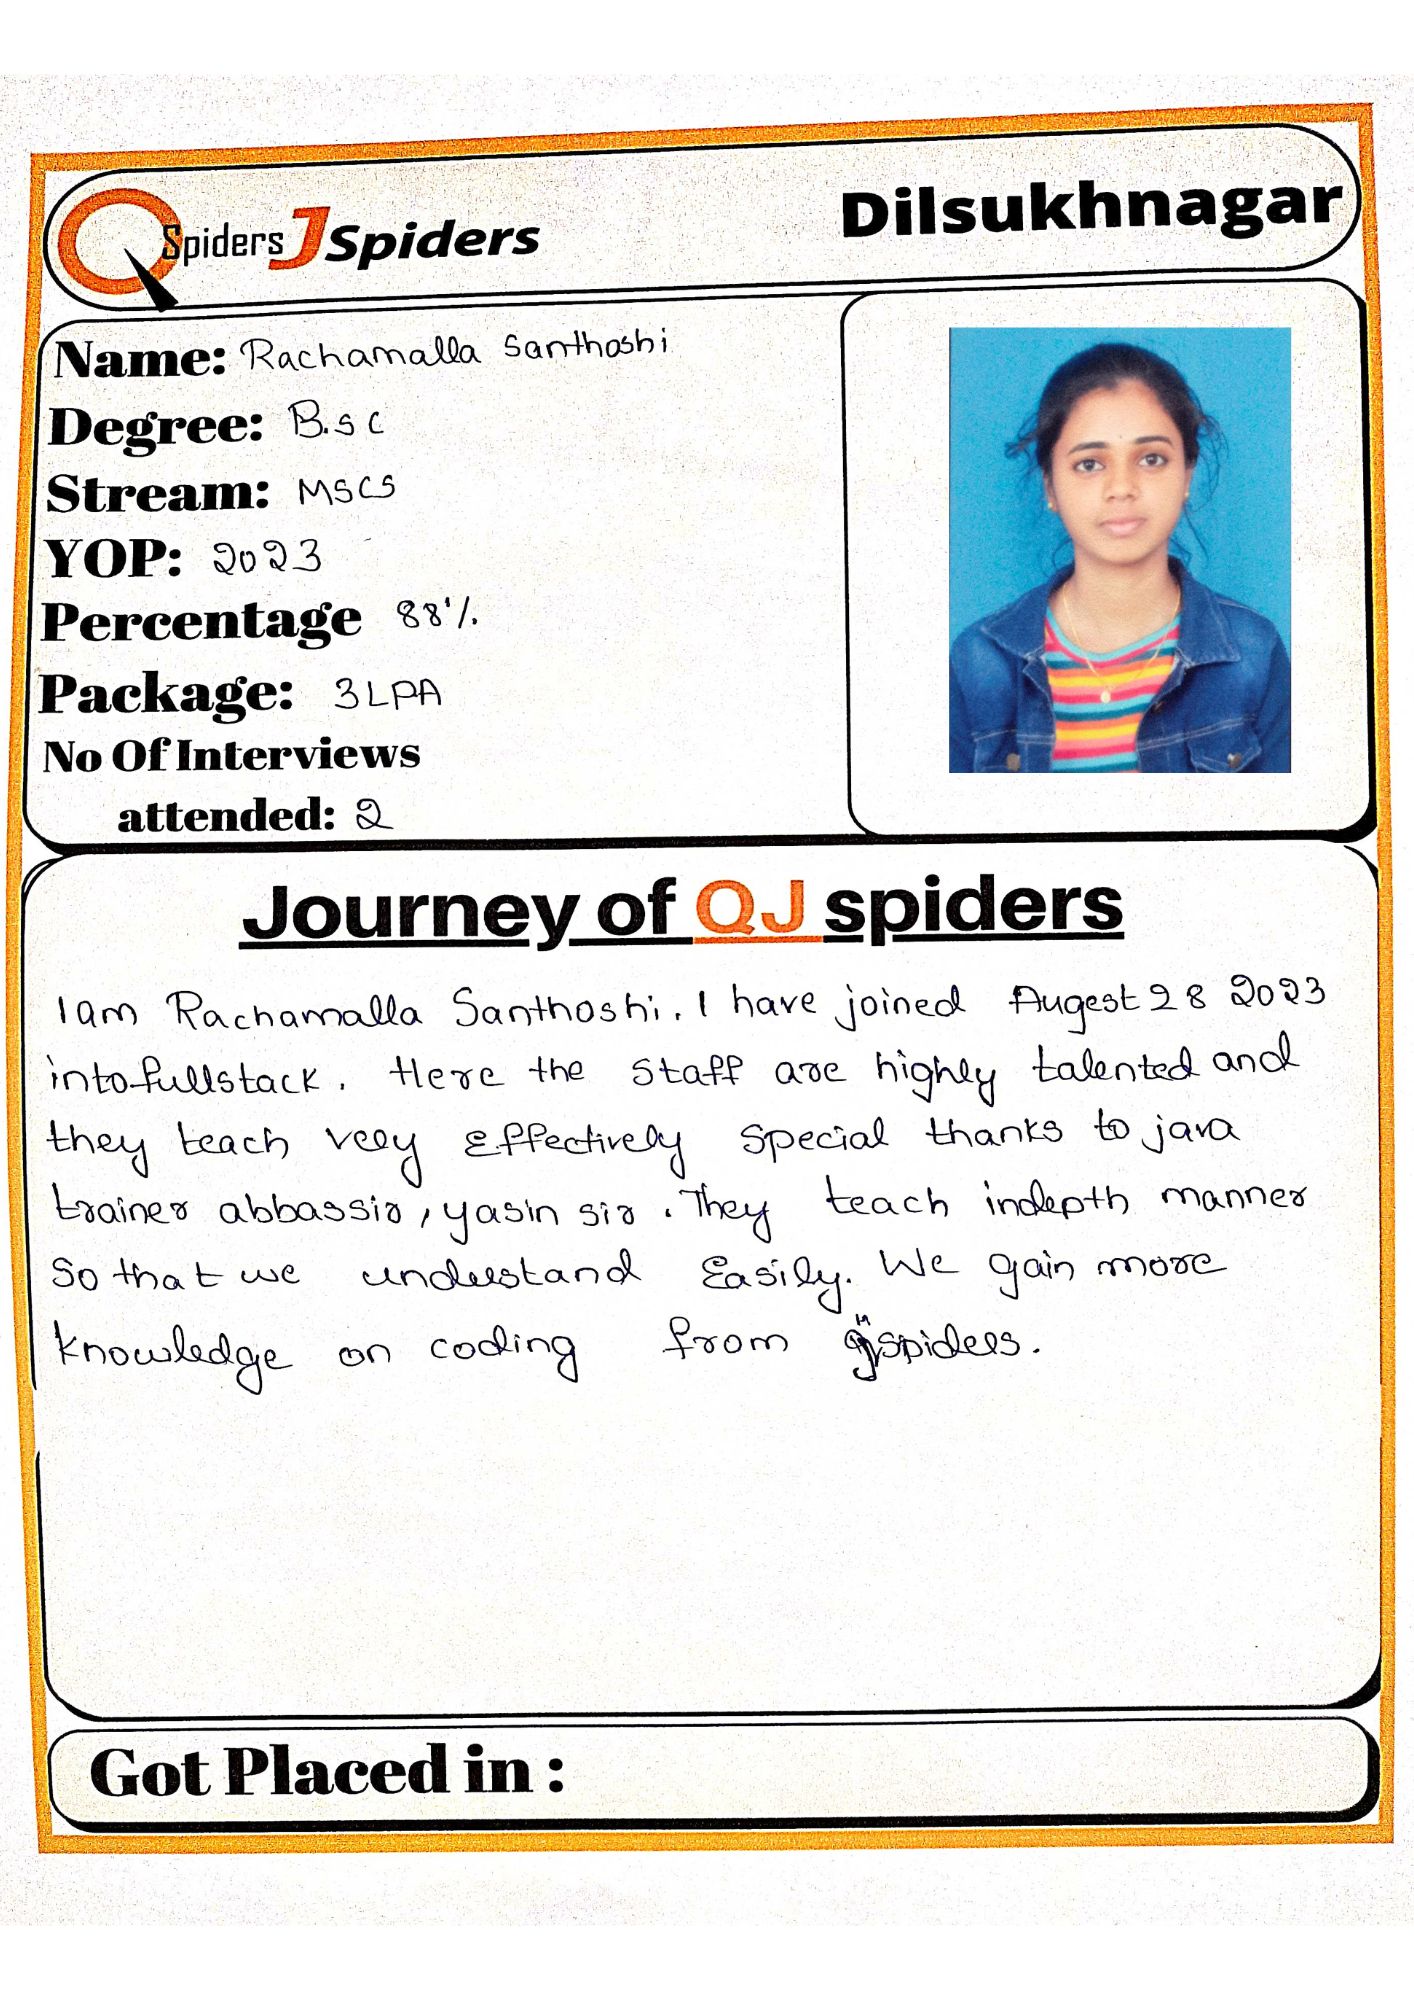 QSpiders JSpiders
Dilsukhnagar
Name: Rachamalla Santhoshi
Degree: B.sc
Stream: MSCS
YOP: 2023
Percentage 88%
Package: 3LPA
No Of Interviews
attended: 2
Journey of QJ spiders
I am Rachamalla Santhoshi. I have joined Augest 28 2023
into fullstack. Here the staff are highly talented and
they teach very Effectively special thanks to java
trainer abbassir, yasin sir. They teach indepth manner
So that we understand Easily. We gain more
knowledge on coding from qjspiders.
Got Placed in :